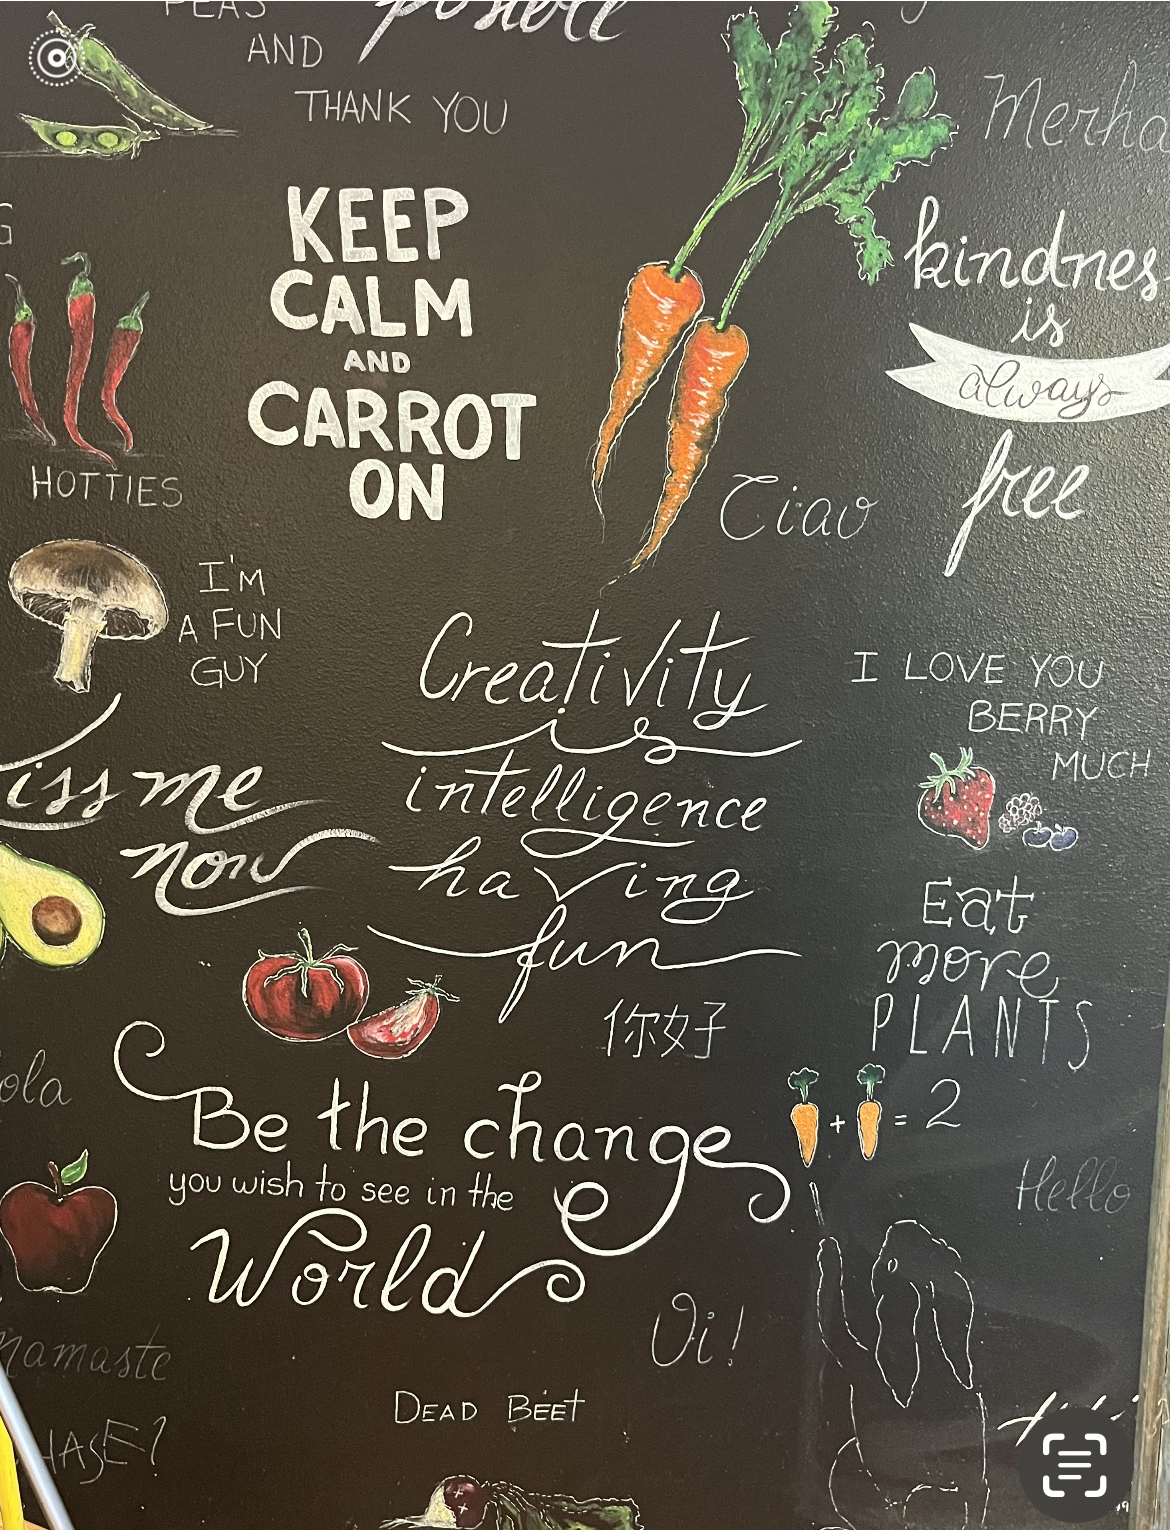 PEAS
AND
THANK YOU
KEEP
CALM
AND
CARROT
ON
kindnes
is
always
free
HOTTIES
Ciao
I'M
A FUN
GUY
Creativity
is
intelligence
having
fun
I LOVE YOU
BERRY
MUCH
iss me
now
Eat
more
PLANTS
你好
ola
+ = 2
Be the change
you wish to see in the
World
Hello
Oi!
Namaste
DEAD BEET